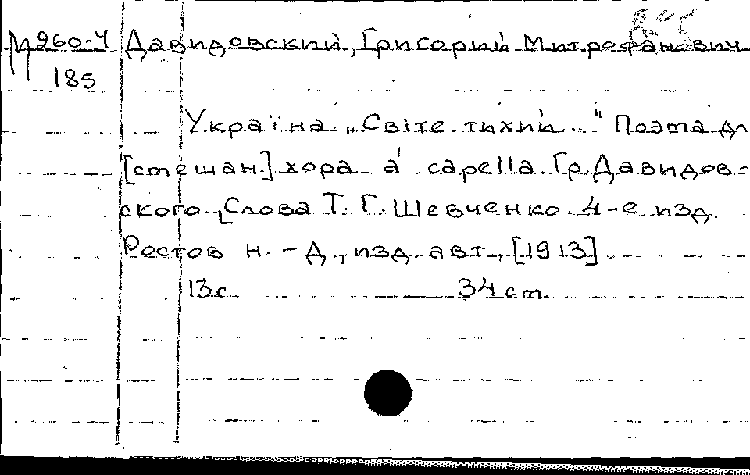 М 960-4 Давидовский, Григорий Митрофанович
185
Україна „Світе тихий..." Поэма дл
[смешан.] хора a' capella. Гр. Давидов-
ского. Слова Т. Г. Шевченко 4-е изд.
Ростов н.-Д., изд. авт., [1913]
13 с. 34 см.